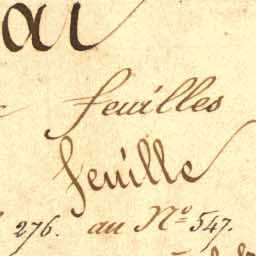 feuilles
feuille
276. au Nº 547.